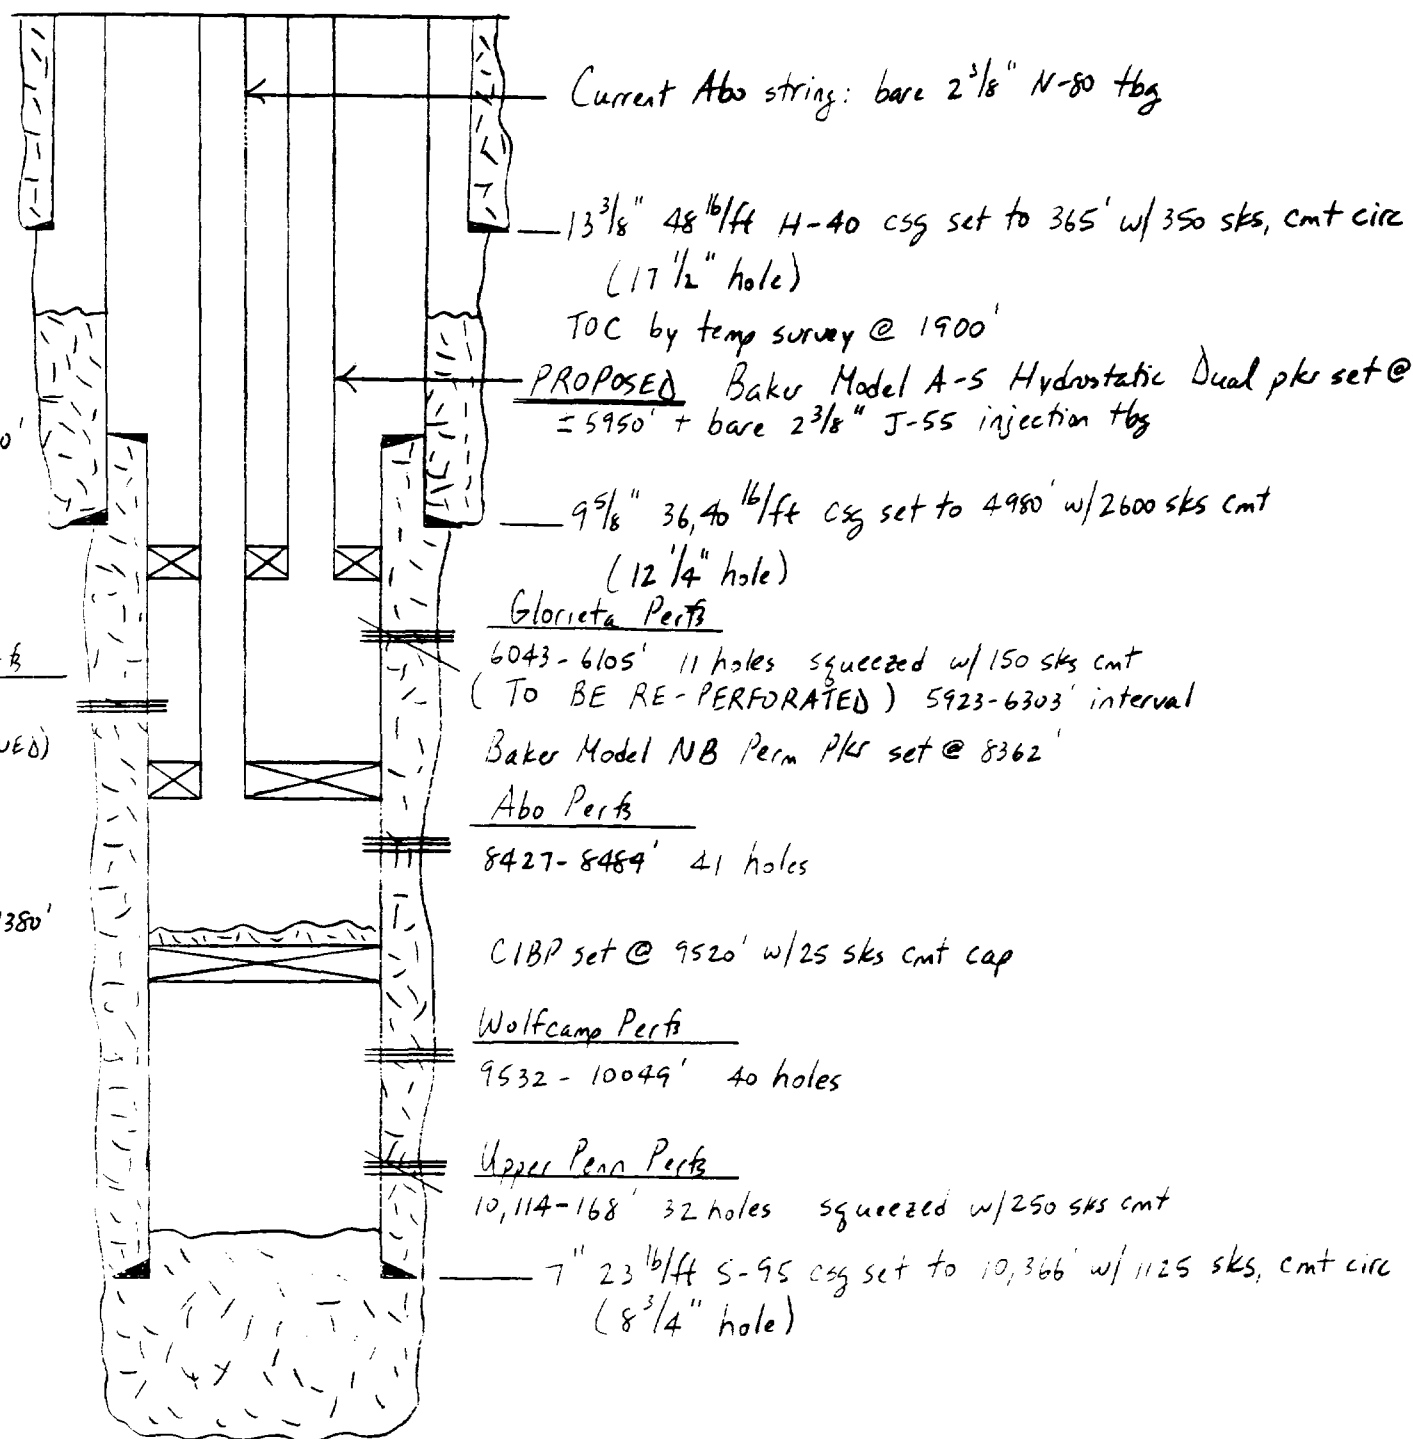 Current Abo string: bare 2 3/8" N-80 tbg
13 3/8" 48 lb/ft H-40 csg set to 365' w/350 sks, cmt circ
(17 1/2" hole)
TOC by temp survey @ 1900'
PROPOSED Baker Model A-5 Hydrostatic Dual pkr set @
± 5950' + bare 2 3/8" J-55 injection tbg
0'
9 5/8" 36,40 lb/ft csg set to 4980' w/2600 sks cmt
(12 1/4" hole)
Glorieta Perfs
6043-6105' 11 holes squeezed w/150 sks cmt
(TO BE RE-PERFORATED) 5923-6303' interval
Baker Model NB Perm Pkr set @ 8362'
Abo Perfs
8427-8484' 41 holes
1380'
CIBP set @ 9520' w/25 sks cmt cap
Wolfcamp Perfs
9532-10049' 40 holes
Upper Penn Perfs
10,114-168' 32 holes squeezed w/250 sks cmt
7" 23 lb/ft S-95 csg set to 10,366' w/1125 sks, cmt circ
(8 3/4" hole)